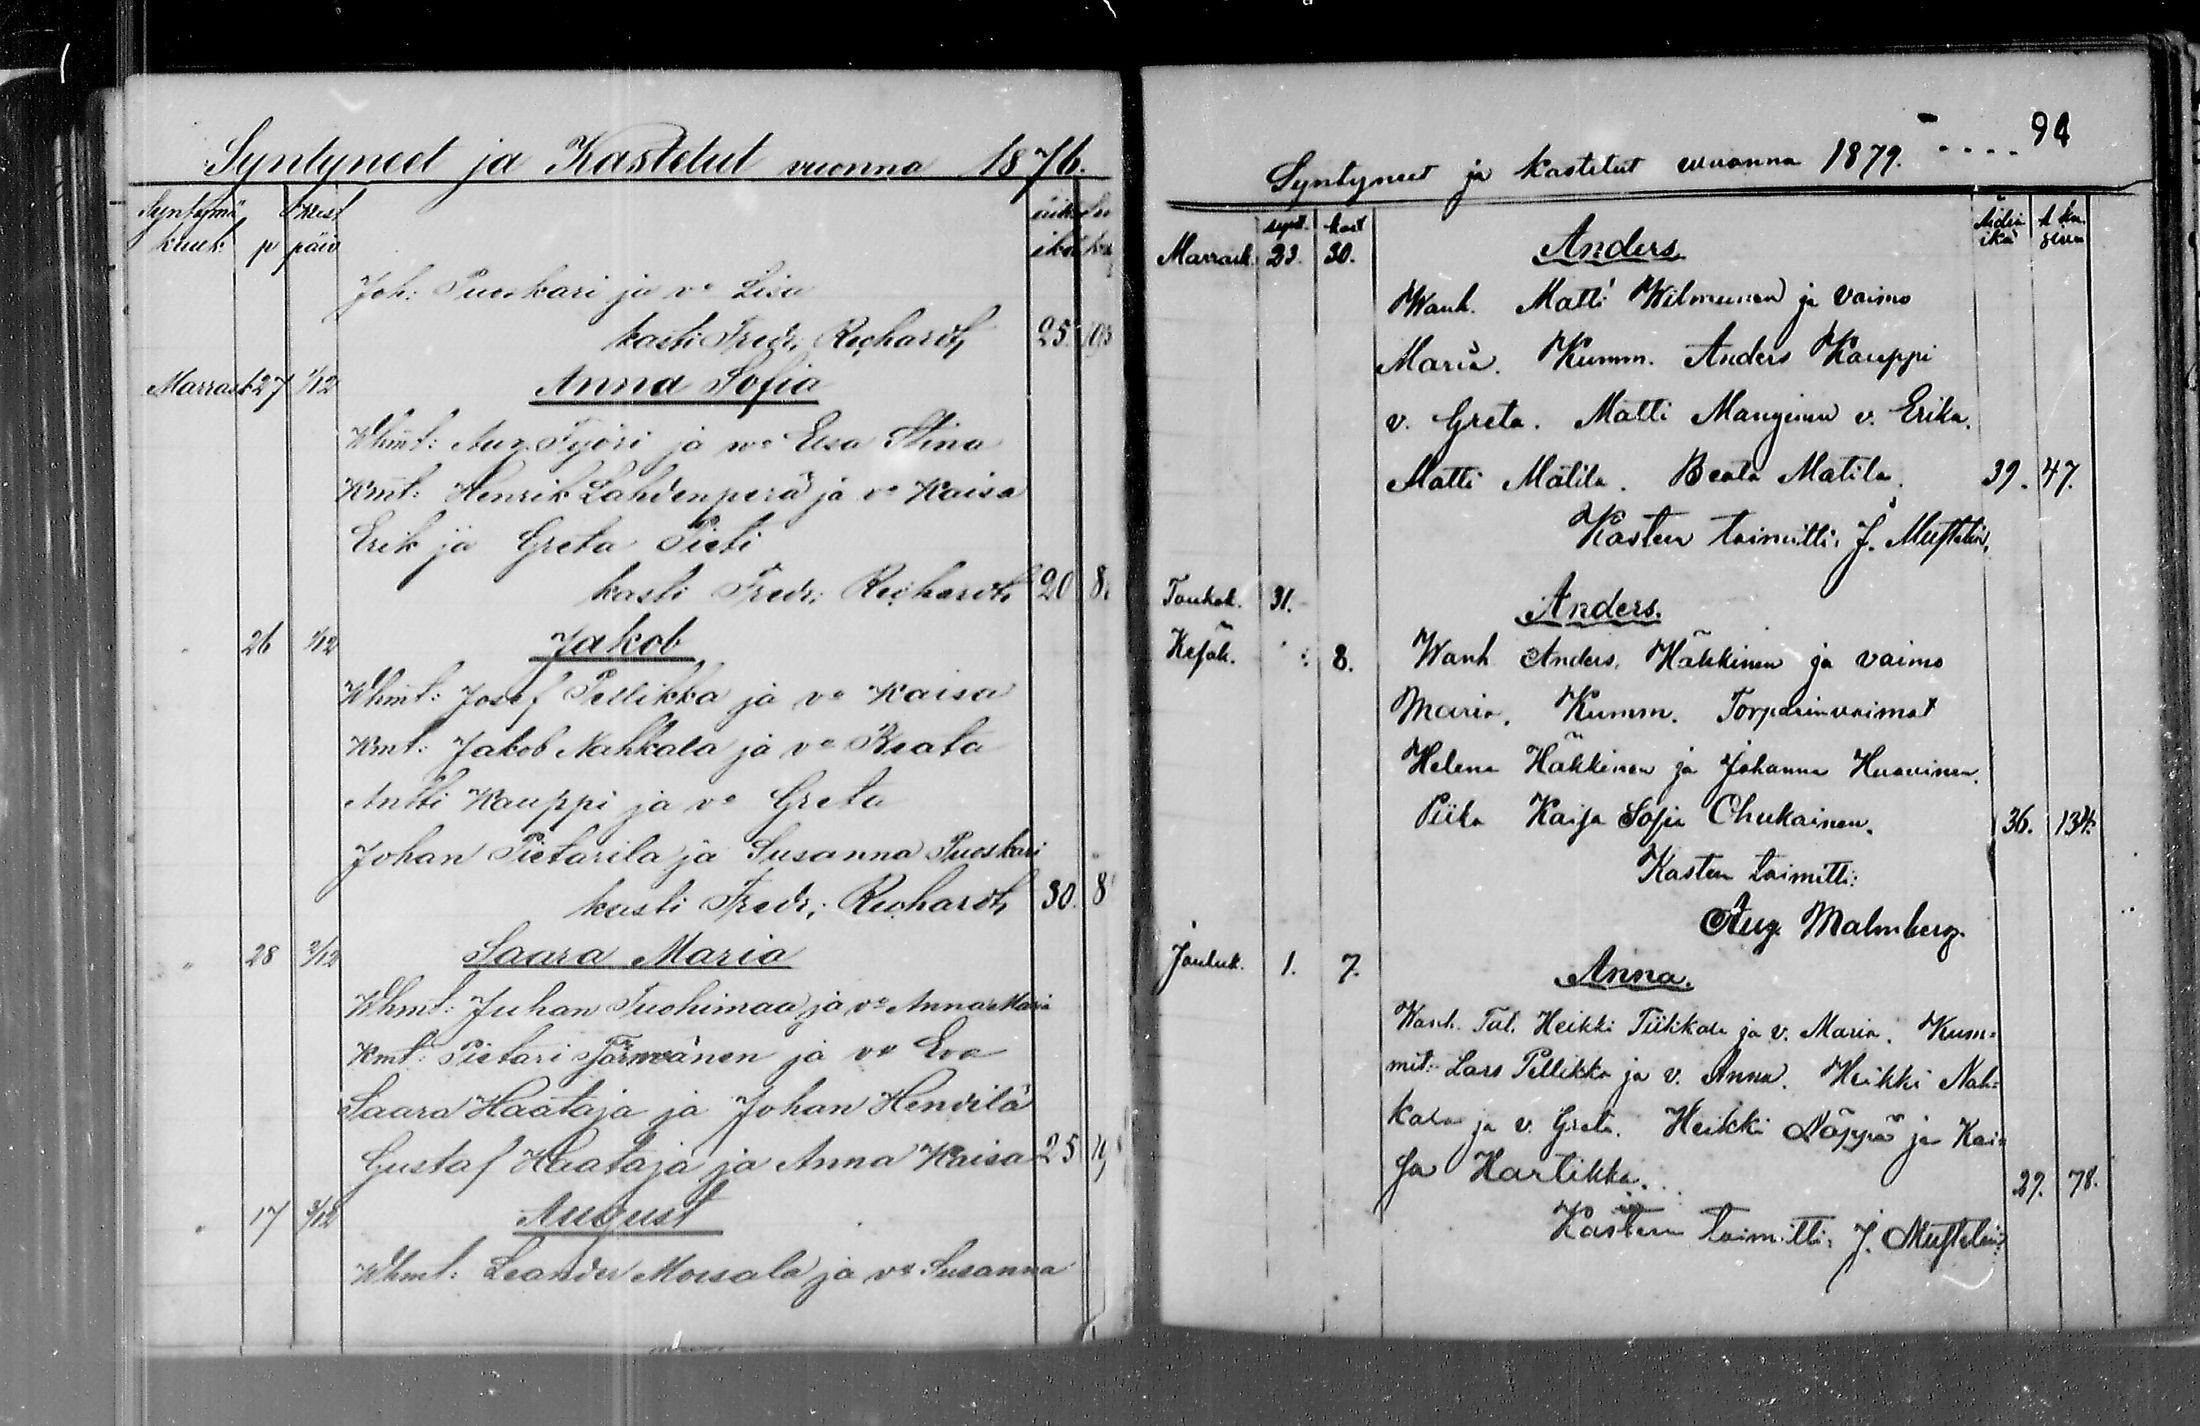 Syntyneet ja Kastetut vuonna 1876.
Syntymä Krist äiti
kuuk p päiv ikä
Joh: Puoskari ja vo Lisa
kasti Fredr. Rechardt 25
Marrask 27 1/12 Anna Sofia
Whmt: Aug. Työri ja wo Elsa Stina
Kmt: Henrik Lahdenperä ja vo Kaisa
Erik ja Greta Pieti
kasti Fredr: Rechardt 20 8
" 26 1/12 Jakob
Whmt: Josef Pellikka ja vo Kaisa
Kmt: Jakob Nahkala ja vo Beata
Antti Kauppi ja vo Greta
Johan Pietarila ja Susanna Puoskari
kasti Fredr: Rechardt 30. 8
" 28 2/12 Saara Maria
Whmt: Juhan Tuohimaa ja vo Anna Maria
Kmt: Pietari Tärwänen ja vo Eva
Saara Haataja ja Johan Hendilä
Gustaf Haataja ja Anna Kaisa 25
" 17 3/12 August
Whmt: Leander Moisala ja vo Susanna
94
Syntyneet ja kastetut vuonna 1879.
synt. kast Äidin
ikä
Marrask. 23. 30. Anders
Wanh. Matti Wilmunen ja vaimo
Maria. Kumm. Anders Kauppi
v. Greta. Matti Manginen v. Erika.
Matti Mátila. Beata Matila. 39. 47.
Kasten toimitti: J. Mustelin.
Toukok. 31. Anders.
Kesäk. 8. Wanh. Anders Häkkinen ja vaimo
Maria. Kumm. Torparinvaimot
Helena Häkkinen ja Johanna Huovinen.
Piika Kaisa Sofia Ohukainen. 36. 134.
Kasten toimitti:
Aug. Malmberg.
Jouluk. 1. 7. Anna.
Wanh. Tal. Heikki Tiikkala ja v. Maria. Kum-
mit: Lars Pellikka ja v. Anna. Heikki Nah-
kala ja v. Greta. Heikki Näppä ja Kai-
sa Hartikka. 29. 78.
Kasten toimitti: J. Mustelin